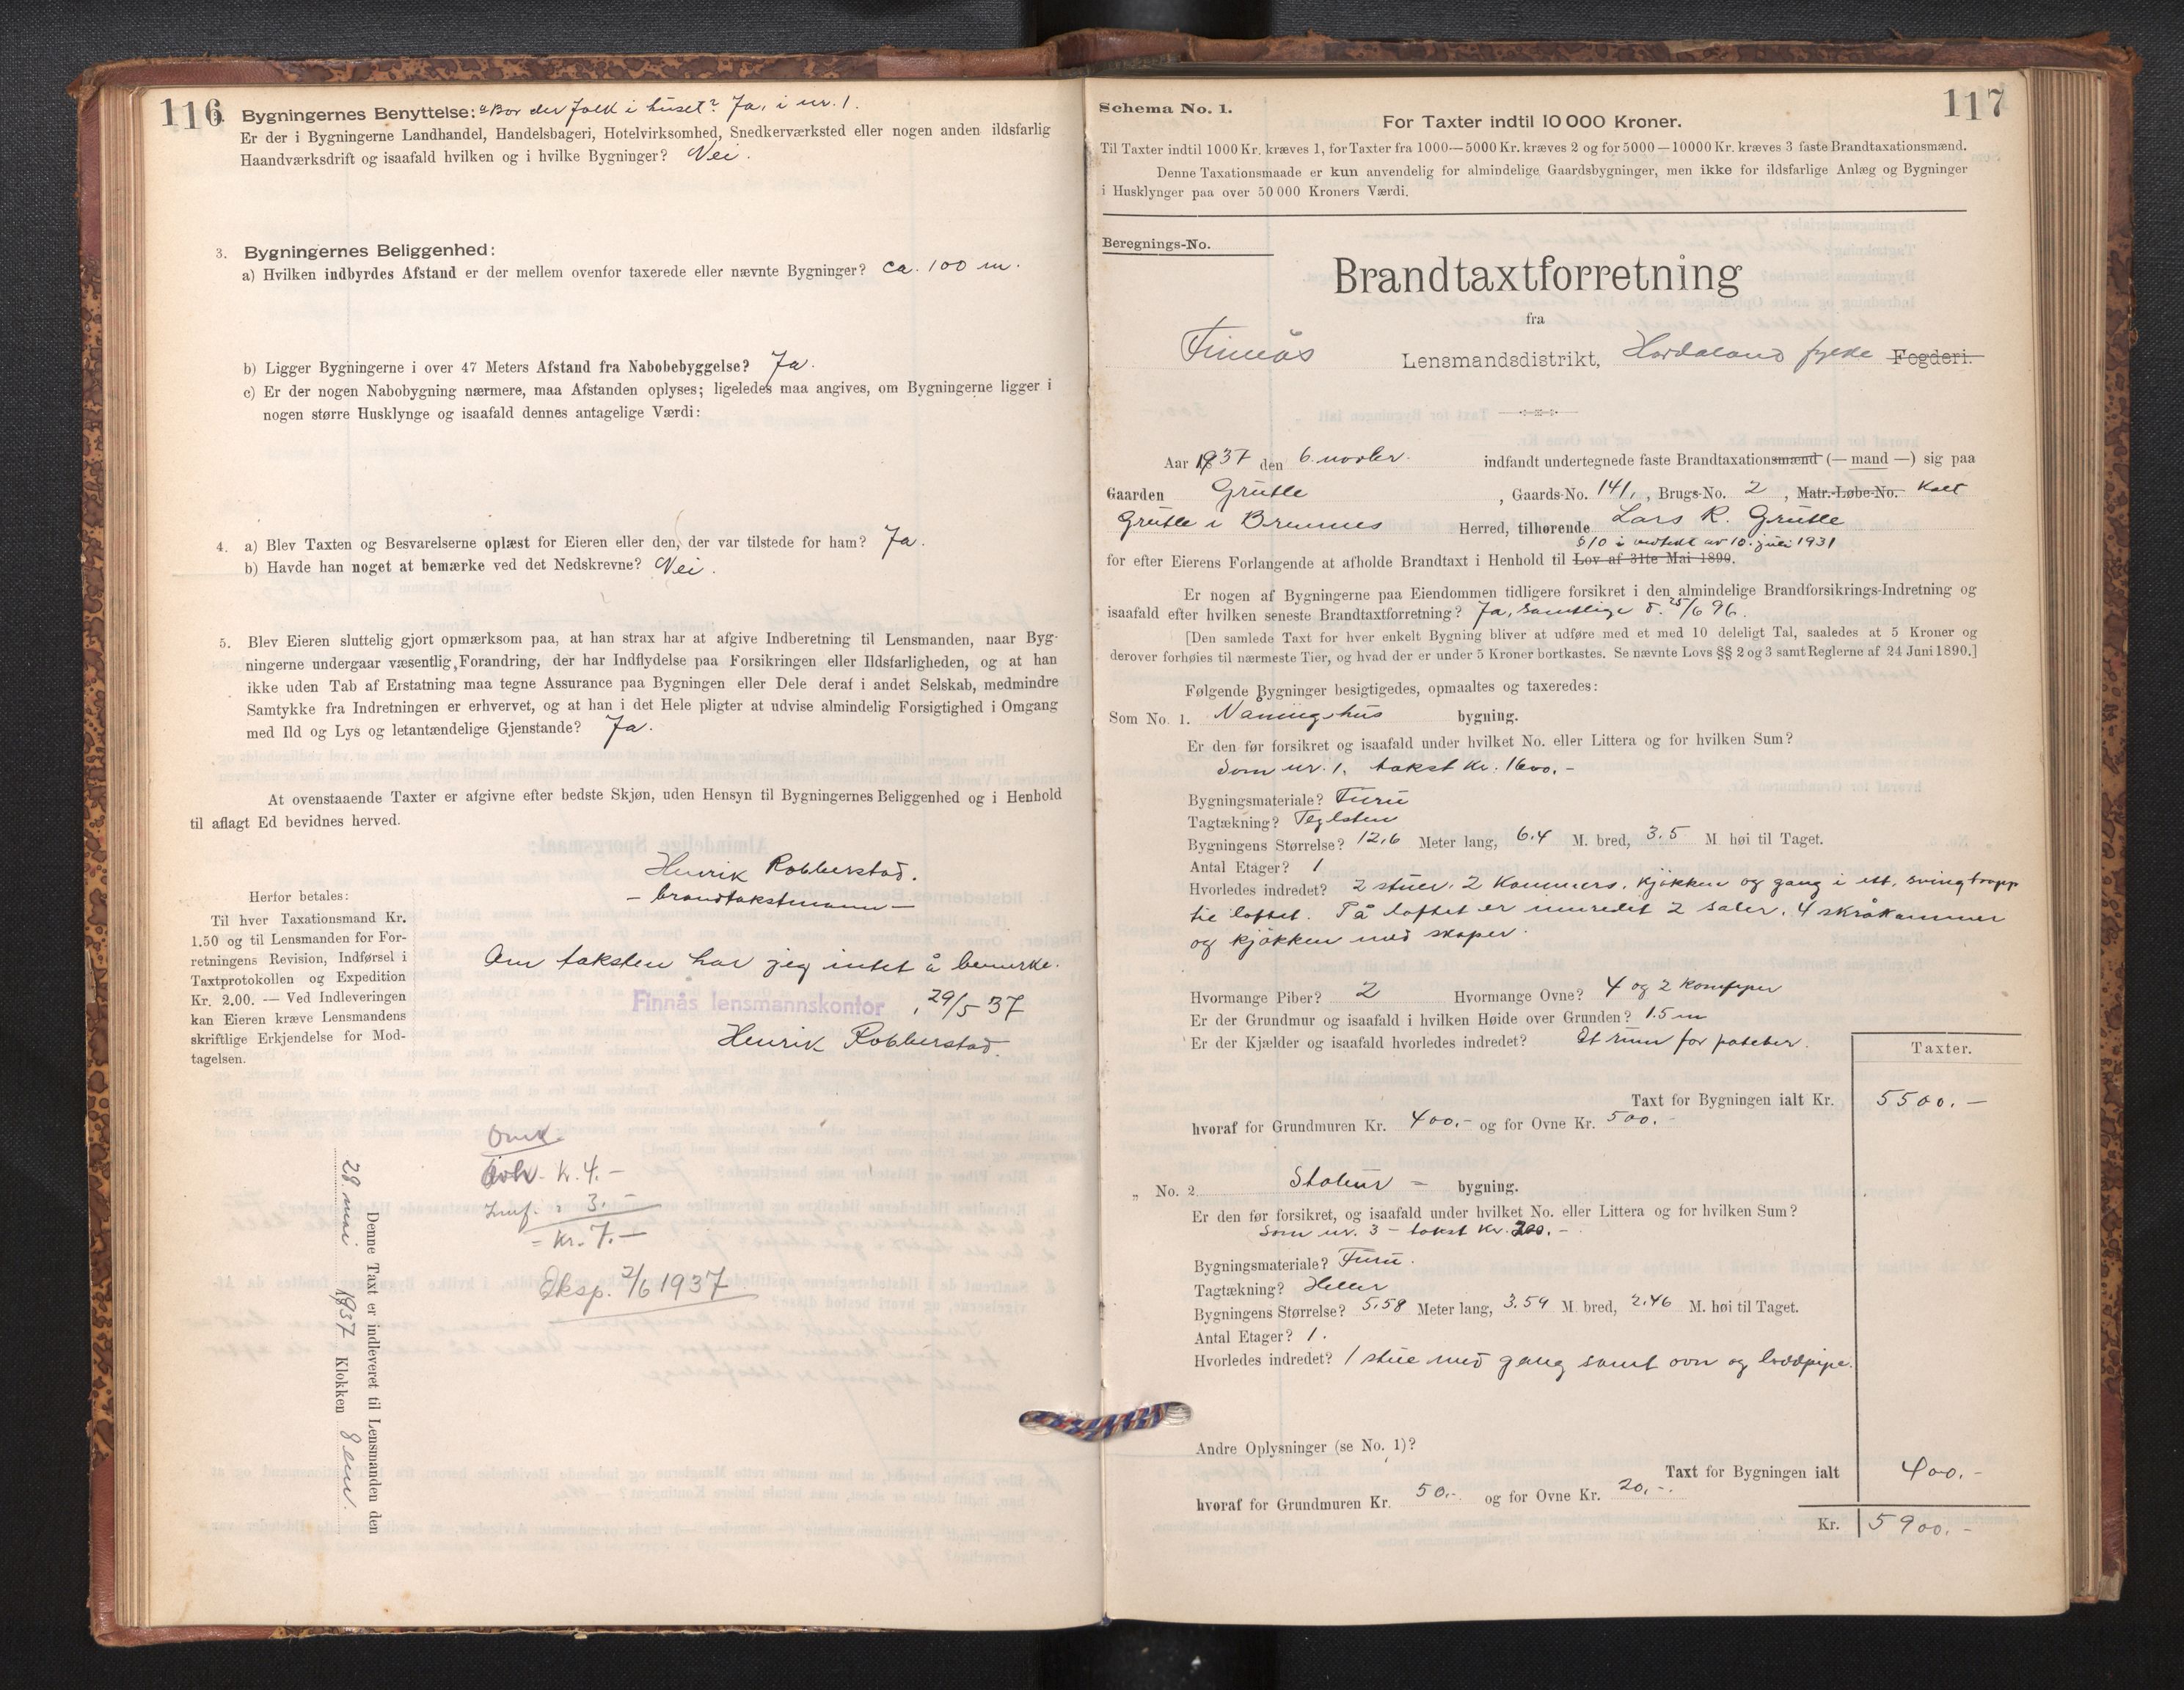 116
Bygningernes Benyttelse: a Bor der folk i huset? Ja, i nr. 1.
Er der i Bygningerne Landhandel, Handelsbageri, Hotelvirksomhed, Snedkerværksted eller nogen anden ildsfarlig
Haandværksdrift og isaafald hvilken og i hvilke Bygninger? Nei.
3. Bygningernes Beliggenhed:
a) Hvilken indbyrdes Afstand er der mellem ovenfor taxerede eller nævnte Bygninger? ca. 100 m.
b) Ligger Bygningerne i over 47 Meters Afstand fra Nabobebyggelse? Ja.
c) Er der nogen Nabobygning nærmere, maa Afstanden oplyses; ligeledes maa angives, om Bygningerne ligger i
nogen større Husklynge og isaafald dennes antagelige Værdi:
4. a) Blev Taxten og Besvarelserne oplæst for Eieren eller den, der var tilstede for ham? Ja.
b) Havde han noget at bemærke ved det Nedskrevne? Nei.
5. Blev Eieren sluttelig gjort opmærksom paa, at han strax har at afgive Indberetning til Lensmanden, naar Byg-
ningerne undergaar væsentlig Forandring, der har Indflydelse paa Forsikringen eller Ildsfarligheden, og at han
ikke uden Tab af Erstatning maa tegne Assurance paa Bygningen eller Dele deraf i andet Selskab, medmindre
Samtykke fra Indretningen er erhvervet, og at han i det Hele pligter at udvise almindelig Forsigtighed i Omgang
med Ild og Lys og letantændelige Gjenstande? Ja.
At ovenstaaende Taxter er afgivne efter bedste Skjøn, uden Hensyn til Bygningernes Beliggenhed og i Henhold
til aflagt Ed bevidnes herved.
Henrik Robberstad.
- brandtakstmann -
Herfor betales:
Til hver Taxationsmand Kr.
1.50 og til Lensmanden for For-
retningens Revision, Indførsel i
Taxtprotokollen og Expedition
Kr. 2.00. — Ved Indleveringen
kan Eieren kræve Lensmandens
skriftlige Erkjendelse for Mod-
tagelsen.
Om taksten har jeg intet å bemerke.
Finnås lensmannskontor, 29/5 37
Henrik Robberstad.
K. 4.-
3.-
= Kr. 7.-
Eksp. 2/6 1937
Denne Taxt er indleveret til Lensmanden den
28. mai 1937 Klokken 8 em.
117
Schema No. 1.
For Taxter indtil 10 000 Kroner.
Til Taxter indtil 1000 Kr. kræves 1, for Taxter fra 1000—5000 Kr. kræves 2 og for 5000—10000 Kr. kræves 3 faste Brandtaxationsmænd.
Denne Taxationsmaade er kun anvendelig for almindelige Gaardsbygninger, men ikke for ildsfarlige Anlæg og Bygninger
i Husklynger paa over 50 000 Kroners Værdi.
Beregnings-No.
Brandtaxtforretning
fra
Finnås Lensmandsdistrikt, Hordaland fylke Fogderi.
Aar 1937 den 6. novbr. indfandt undertegnede faste Brandtaxationsmænd (— mand —) sig paa
Gaarden Grutle, Gaards-No. 141, Brugs-No. 2, Matr.-Løbe-No. kalt
Grutle i Bremnes Herred, tilhørende Lars R. Grutle
§ 10 i vedtekt av 10. juli 1931
for efter Eierens Forlangende at afholde Brandtaxt i Henhold til Lov af 31te Mai 1890.
Er nogen af Bygningerne paa Eiendommen tidligere forsikret i den almindelige Brandforsikrings-Indretning og
isaafald efter hvilken seneste Brandtaxtforretning? Ja, samtlige d. 25/6 96.
[Den samlede Taxt for hver enkelt Bygning bliver at udføre med et med 10 deleligt Tal, saaledes at 5 Kroner og
derover forhøies til nærmeste Tier, og hvad der er under 5 Kroner bortkastes. Se nævnte Lovs §§ 2 og 3 samt Reglerne af 24 Juni 1890.]
Følgende Bygninger besigtigedes, opmaaltes og taxeredes:
Som No. 1. Våningshus bygning.
Er den før forsikret og isaafald under hvilket No. eller Littera og for hvilken Sum?
Som nr. 1, takst kr. 1600.-
Bygningsmateriale? Furu
Tagtækning? Teglsten
Bygningens Størrelse? 12,6 Meter lang, 6.4 M. bred, 3.5 M høi til Taget.
Antal Etager? 1
Hvorledes indredet? 2 stuer, 2 kammers, kjøkken og gang i ett, svingtrapp
til loftet. På loftet er innredet 2 saler, 4 skråkammer
og kjøkken med skaper.
Hvormange Piber? 2 Hvormange Ovne? 4 og 2 komfyrer
Er der Grundmur og isaafald i hvilken Høide over Grunden? 1.5 m
Er der Kjælder og isaafald hvorledes indredet? Et rum for poteter.
Taxter.
Taxt for Bygningen ialt Kr. 5500.-
hvoraf for Grundmuren Kr. 400.- og for Ovne Kr. 500.-
„ No. 2. Stabur - bygning.
Er den før forsikret, og isaafald under hvilket No. eller Littera og for hvilken Sum?
Som nr. 3 - takst kr. 200.-
Bygningsmateriale? Furu.
Tagtækning? Heller
Bygningens Størrelse? 5.58 Meter lang, 3.59 M. bred, 2.46 M. høi til Taget.
Antal Etager? 1.
Hvorledes indredet? 1 stue med gang samt ovn og loddpipe.
Andre Oplysninger (se No. 1)?
Taxt for Bygningen ialt 400.-
hvoraf for Grundmuren Kr. 50.- og for Ovne Kr. 20.-
Kr. 5900.-